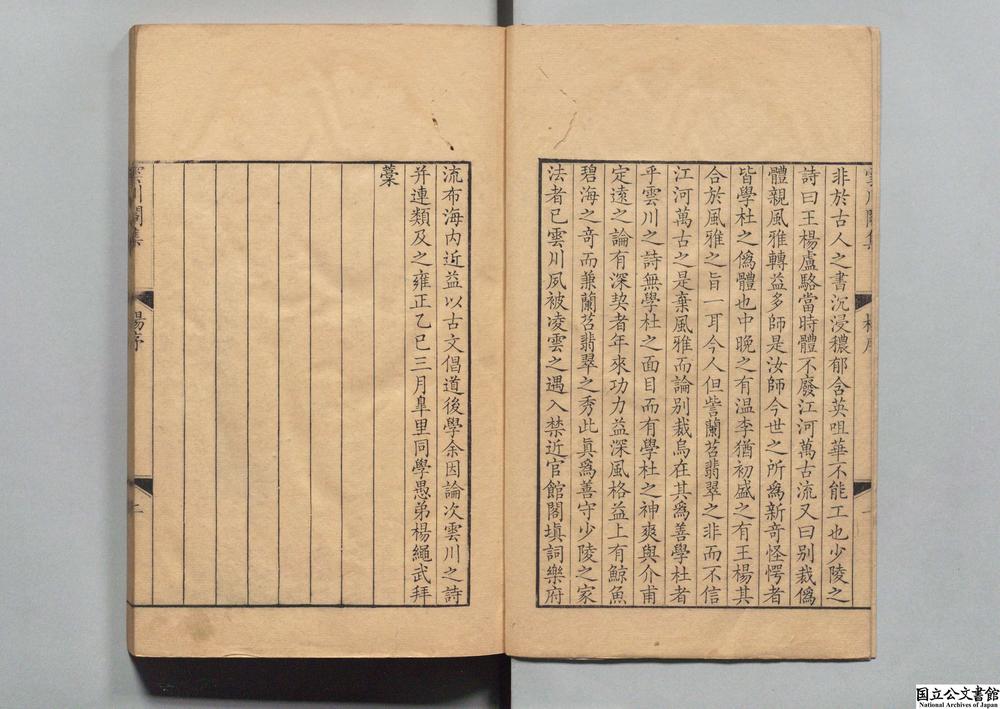 雲川閣集
楊序
一
非於古人之書沉浸穠郁含英咀華不能工也少陵之
詩曰王楊盧駱當時體不廢江河萬古流又曰别裁偽
體親風雅轉益多師是汝師今世之所爲新奇怪愕者
皆學杜之偽體也中晚之有温李猶初盛之有王楊其
合於風雅之旨一耳今人但訾蘭苕翡翠之非而不信
江河萬古之是棄風雅而論别裁烏在其爲善學杜者
乎雲川之詩無學杜之面目而有學杜之神爽與介甫
定遠之論有深契者年來功力益深風格益上有鯨魚
碧海之奇而兼蘭苕翡翠之秀此眞爲善守少陵之家
法者已雲川夙被凌雲之遇入禁近官館閣塡詞樂府
流布海内近益以古文倡道後學余因論次雲川之詩
并連類及之雍正乙巳三月臯里同學愚弟楊繩武拜
藁
雲川閣集
楊序
二
国立公文書館
National Archives of Japan